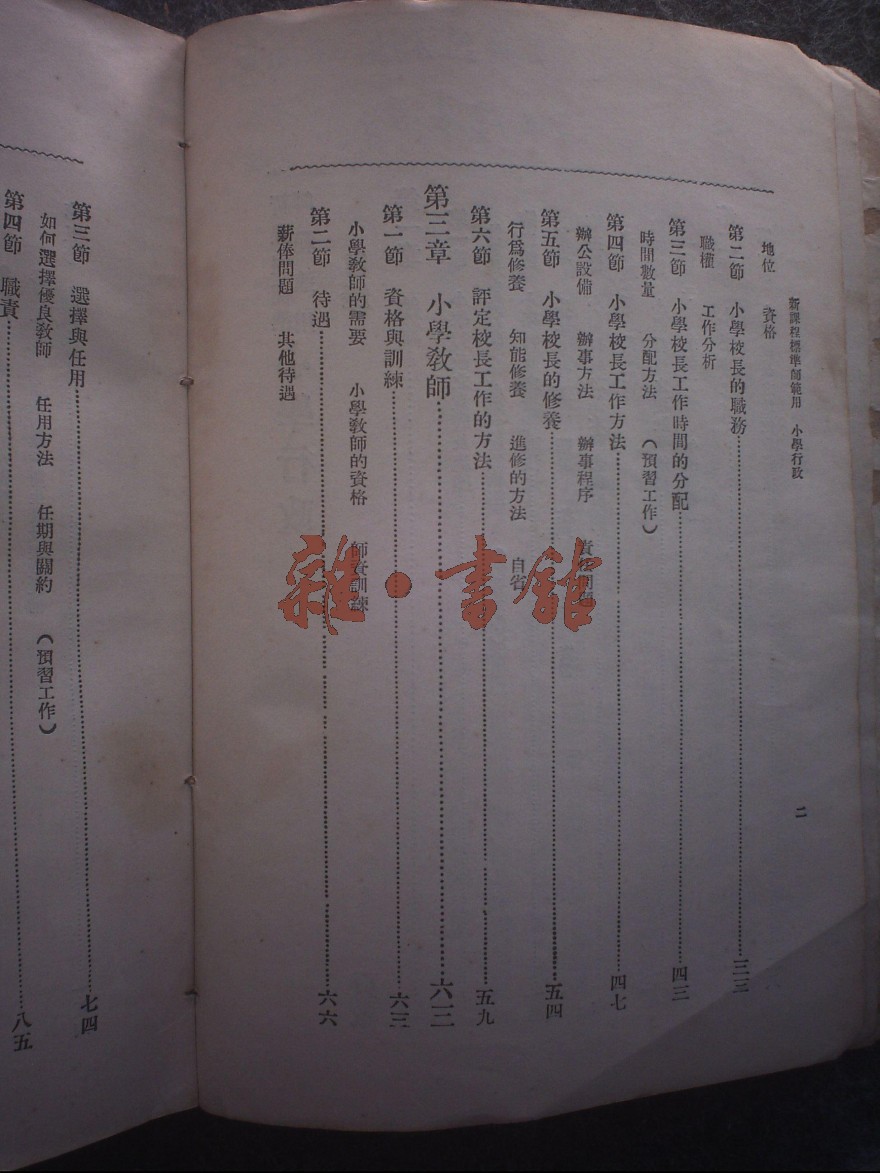 新課程標準師範用　小學行政
二
地位　資格
第二節　小學校長的職務……三三
職權　工作分析
第三節　小學校長工作時間的分配……四三
時間數量　分配方法　（預習工作）
第四節　小學校長工作方法……四七
辦公設備　辦事方法　辦事程序
第五節　小學校長的修養……五四
行爲修養　知能修養　進修的方法　自省
第六節　評定校長工作的方法……五九
第三章　小學教師……六三
第一節　資格與訓練……六三
小學教師的需要　小學教師的資格　師資訓練
第二節　待遇……六六
薪俸問題　其他待遇
第三節　選擇與任用……七四
如何選擇優良教師　任用方法　任期與關約　（預習工作）
第四節　職責……八五
雜·書館